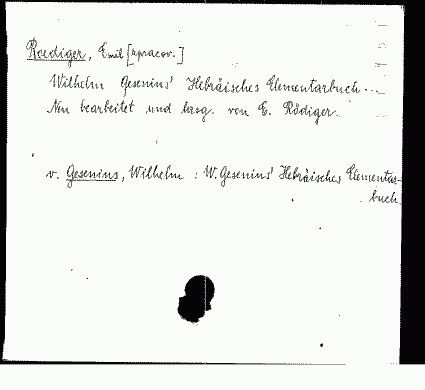 Roediger, Emil [opracov.]
Wilhelm Gesenius' Hebräisches Elementarbuch...
Neu bearbeitet und hrsg. von E. Rödiger.
v. Gesenius, Wilhelm : W. Gesenius' Hebräisches Elementar-
buch.